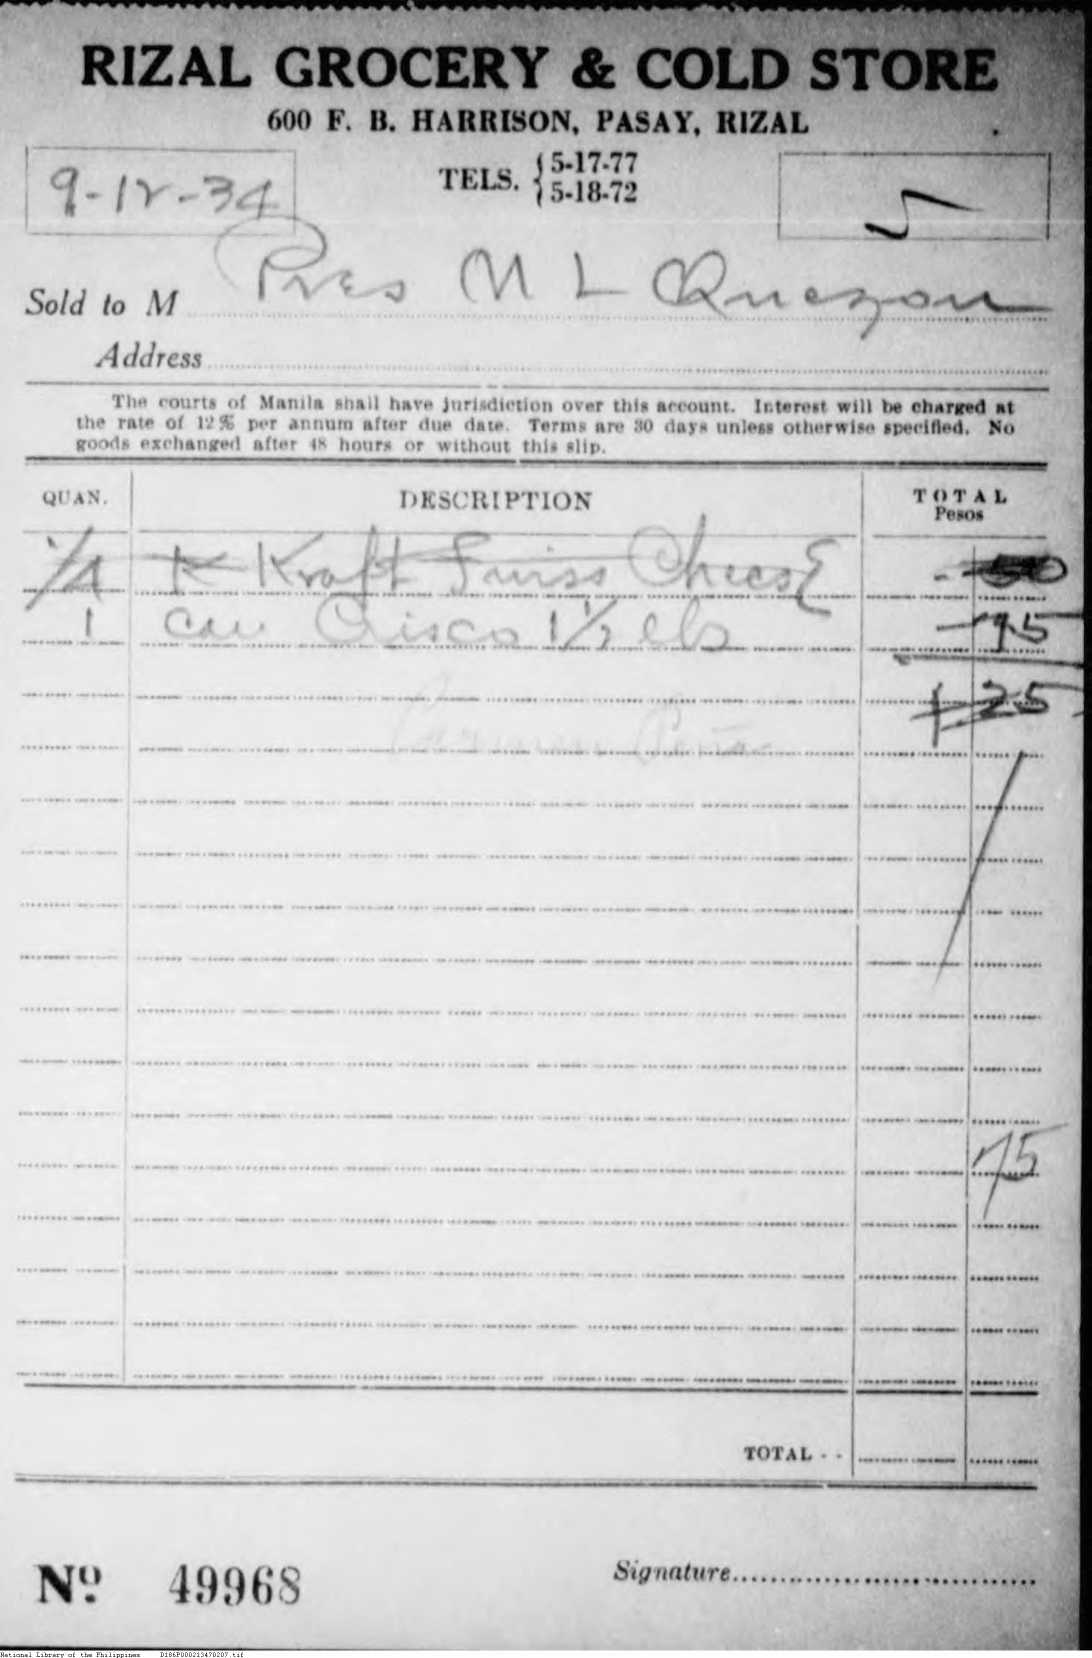 RIZAL GROCERY & COLD STORE
600 F. B. HARRISON, PASAY, RIZAL
TELS. 5-17-77
5-18-72
9-12-34
5
Sold to M Pres M L Quezon
Address
The courts of Manila shall have jurisdiction over this account. Interest will be charged at
the rate of 12% per annum after due date. Terms are 30 days unless otherwise specified. No
goods exchanged after 48 hours or without this slip.
QUAN. DESCRIPTION TOTAL
Pesos
1/4 K Kraft Swiss Cheese - 50
1 can Crisco 1 1/2 lbs - 75
1 25
75
TOTAL - -
Nº 49968
Signature
National Library of the Philippines D186P000213470207.tif